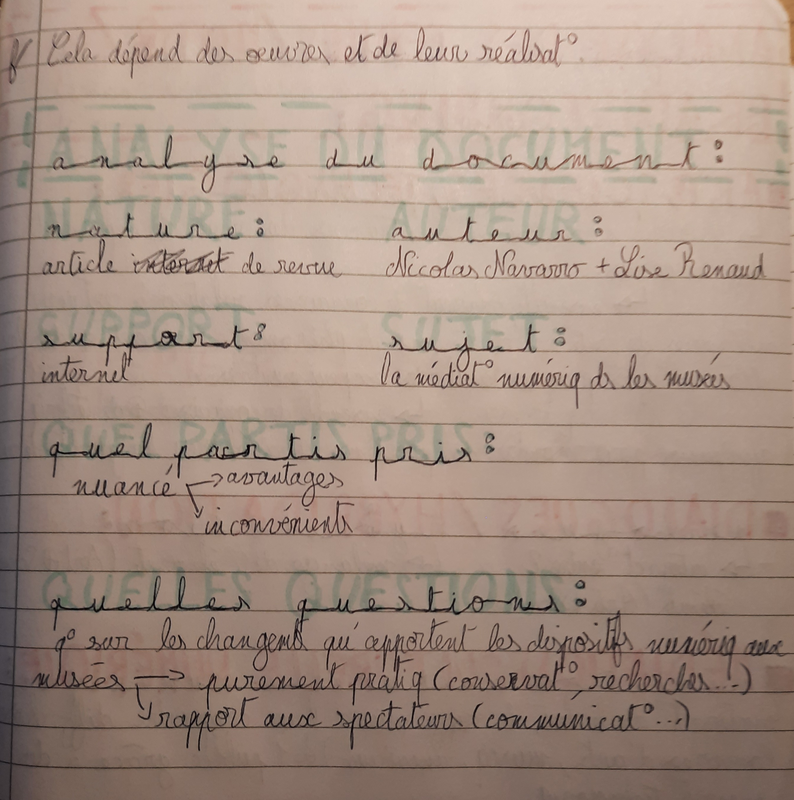 Cela dépend des oeuvres et de leur réalisat°.
analyse du document :
nature : auteur :
article de revue Nicolas Navarro + Lise Renaud
support : sujet :
internet la médiat° numériq ds les musées
quel partis pris :
nuancé → avantages
↳ inconvénients
quelles questions :
q° sur les changemts qu'apportent les dispositifs numériq aux
musées → purement pratiq (conservat°, recherches...)
↳ rapport aux spectateurs (communicat°...)